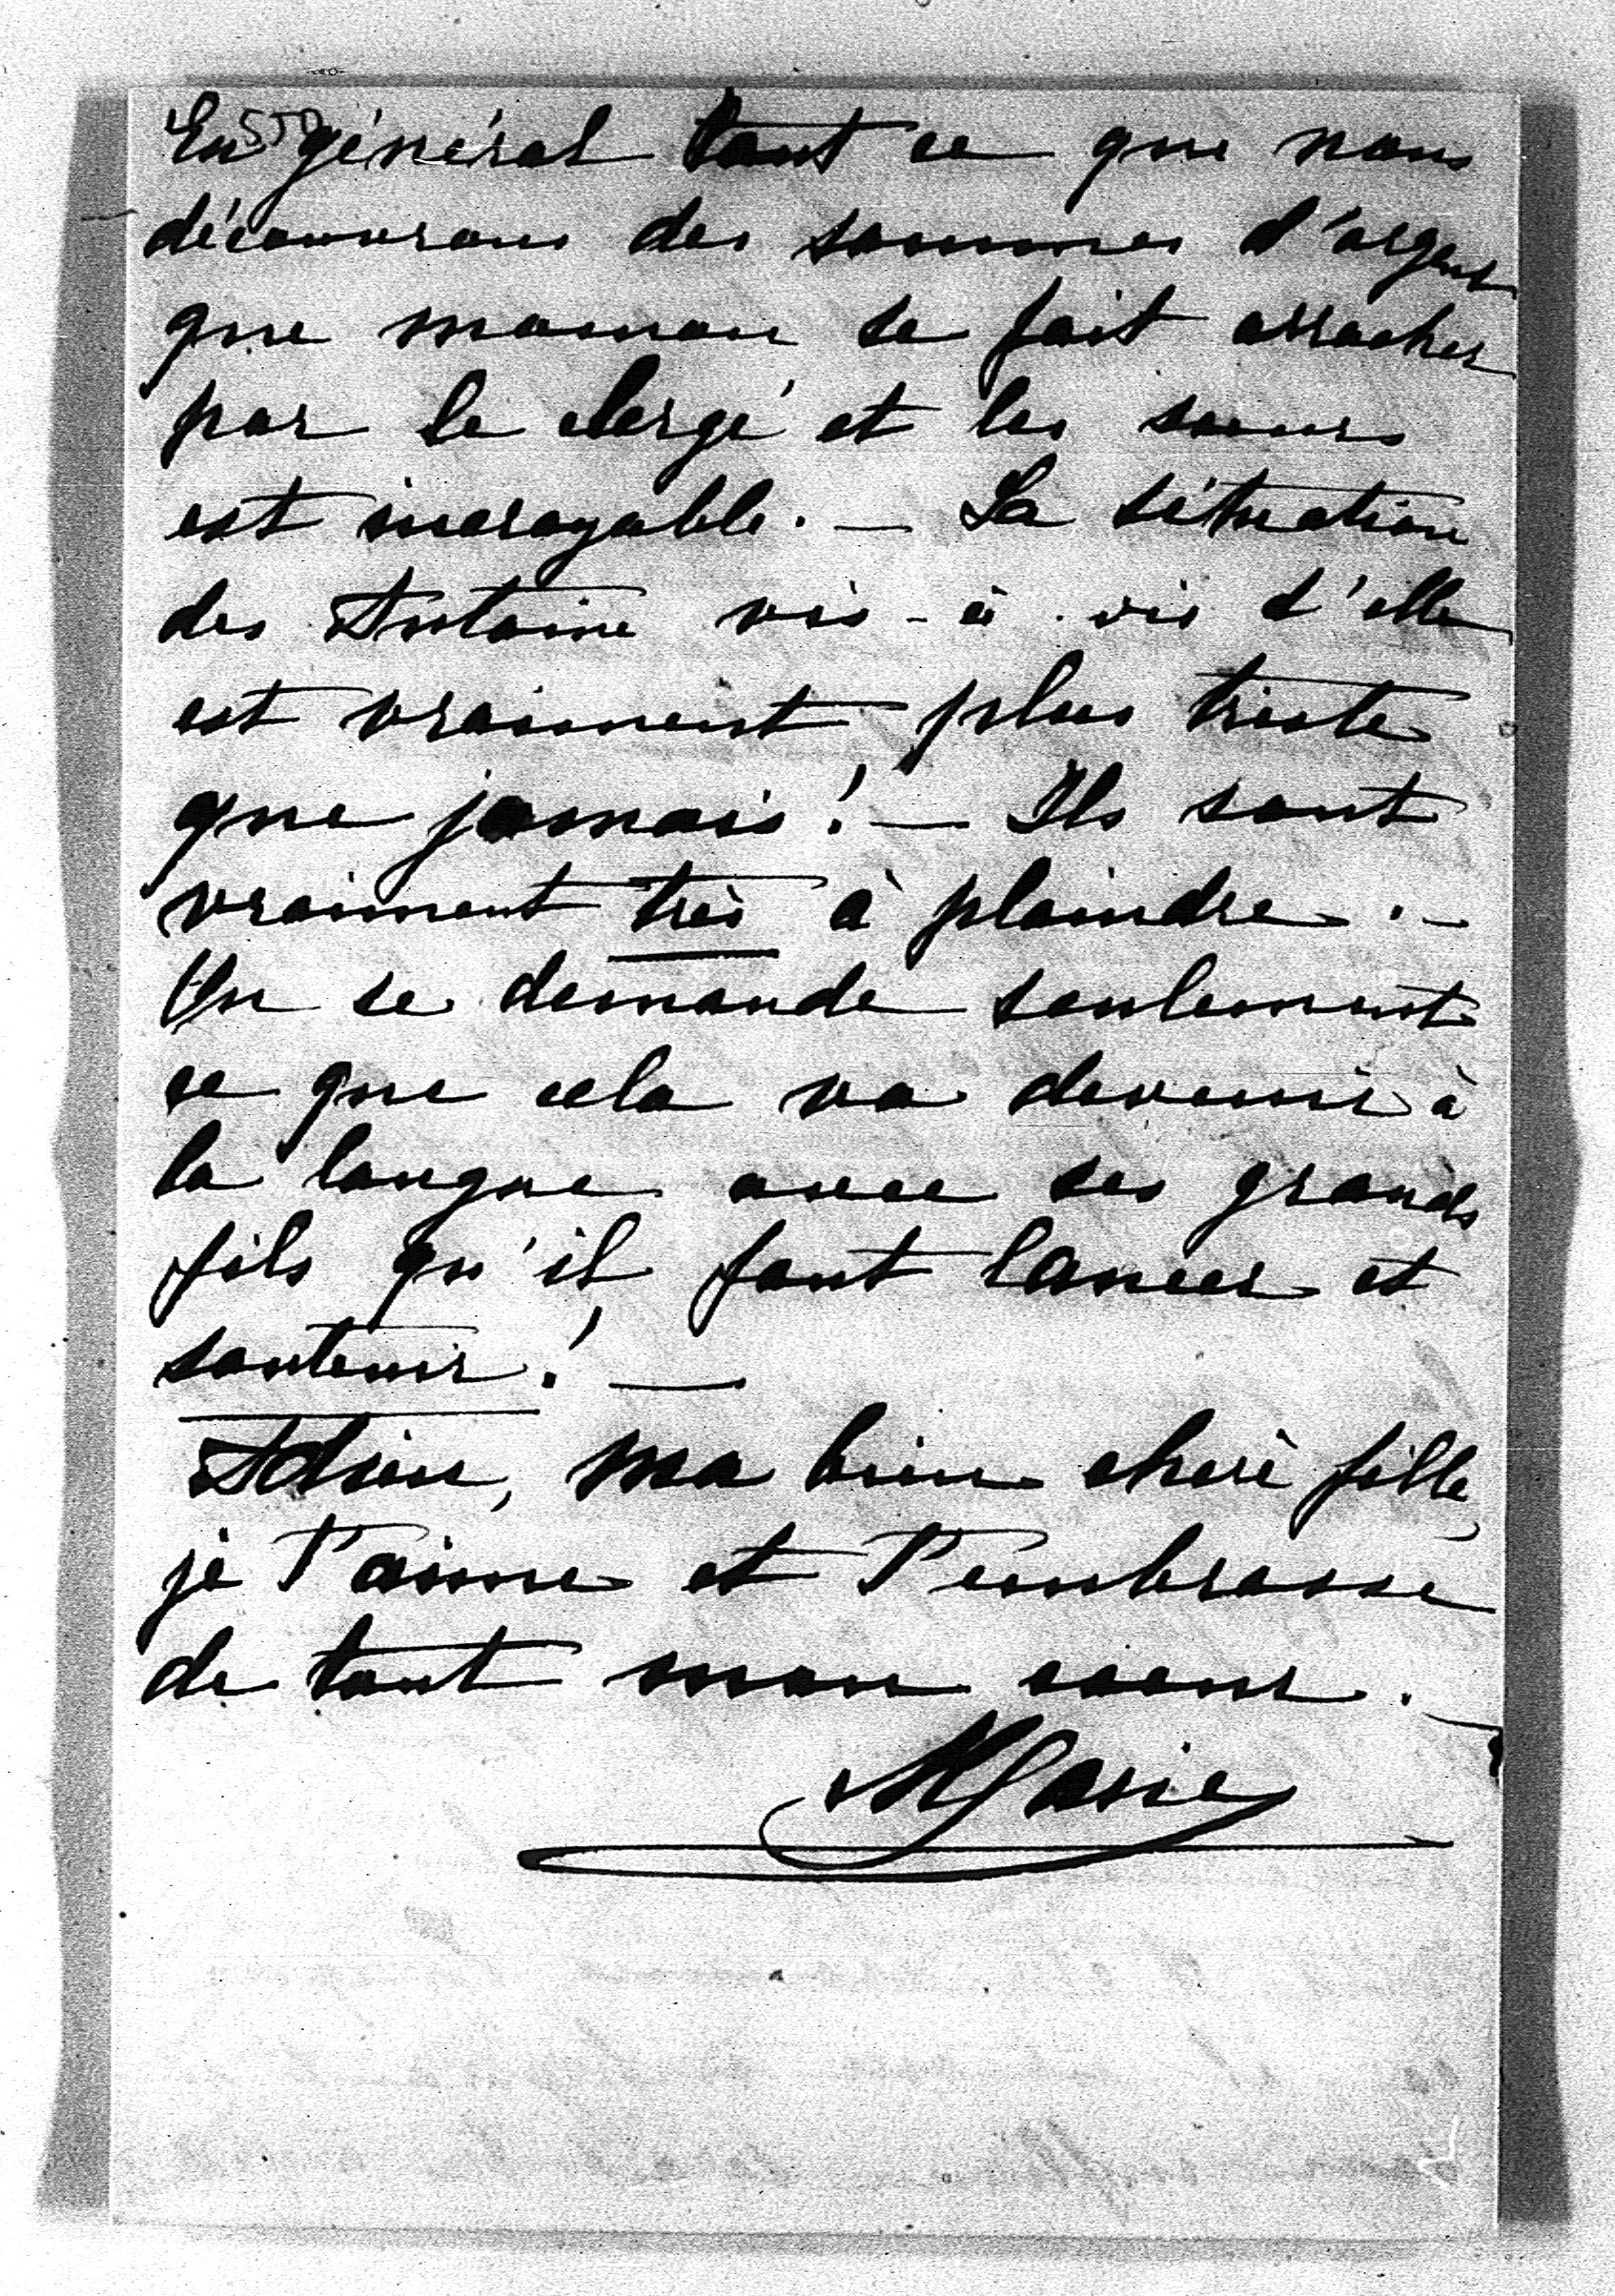 En général tout ce que nous
découvrons des sommes d'argent
que maman se fait arracher
par le clergé et les soeurs
est incroyable. — La situation
des Antoine vis-à-vis d'elle
est vraiment plus triste
que jamais! — Ils sont
vraiment très à plaindre. —
On se demande seulement
ce que cela va devenir à
la longue avec ses grands
fils qu'il faut lancer et
soutenir! —
Adieu, ma bien chère fille,
je t'aime et t'embrasse
de tout mon coeur. —
Marie